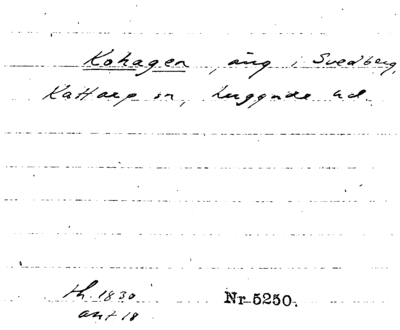 Kohagen, äng i Svedberg,
Kattarp sn, Luggude hd.
th. 1830
ant 18
Nr 5250.